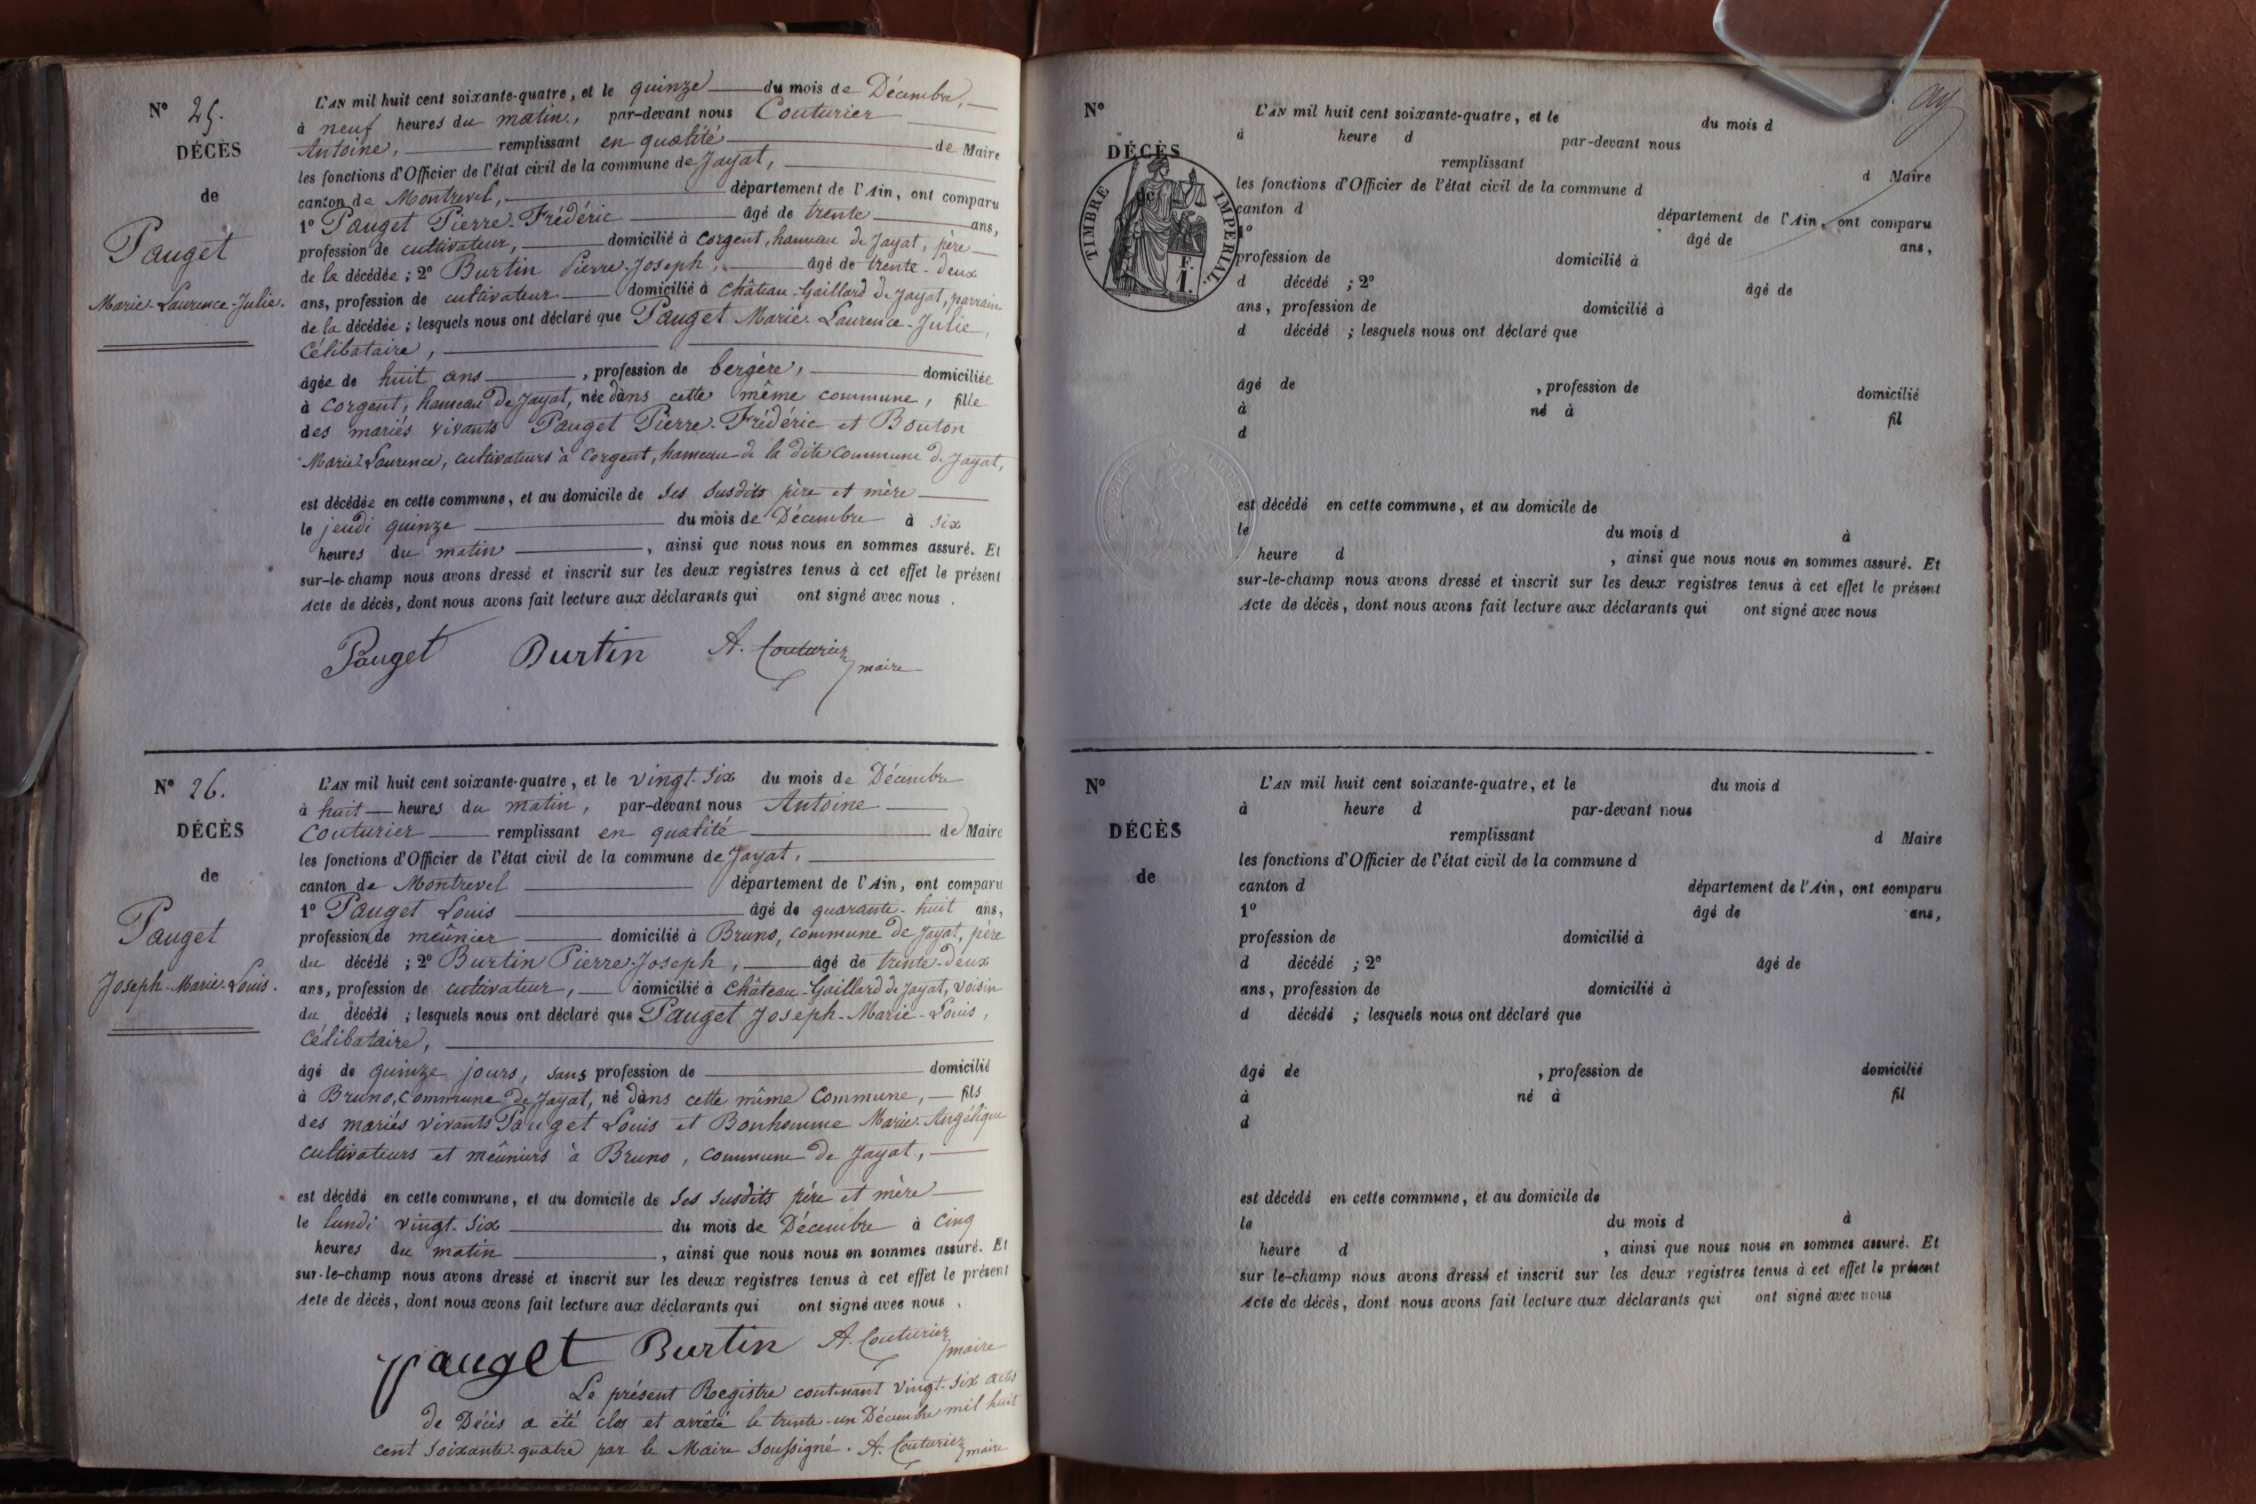 N° 25.
DÉCÈS
de
Pauget
Marie-Laurence-Julie.
L'AN mil huit cent soixante-quatre, et le quinze du mois de Décembre,
à neuf heures du matin, par-devant nous Couturier
Antoine, remplissant en qualité de Maire
les fonctions d'Officier de l'état civil de la commune de Jayat,
canton de Montrevel, département de l'Ain, ont comparu
1° Pauget Pierre-Frédéric âgé de trente ans,
profession de cultivateur, domicilié à Corgent, hameau de Jayat, père
de la décédée ; 2° Burtin Pierre-Joseph, âgé de trente-deux
ans, profession de cultivateur domicilié à Château-Gaillard de Jayat, parrain
de la décédée ; lesquels nous ont déclaré que Pauget Marie-Laurence-Julie,
Célibataire,
âgée de huit ans, profession de bergère, domiciliée
à Corgent, hameau de Jayat, née dans cette même commune, fille
des mariés vivants Pauget Pierre-Frédéric et Bouton
Marie-Laurence, cultivateurs à Corgent, hameau de la dite Commune de Jayat,
est décédée en cette commune, et au domicile de ses susdits père et mère
le jeudi quinze du mois de Décembre à six
heures du matin, ainsi que nous nous en sommes assuré. Et
sur-le-champ nous avons dressé et inscrit sur les deux registres tenus à cet effet le présent
Acte de décès, dont nous avons fait lecture aux déclarants qui ont signé avec nous.
Pauget Burtin A. Couturier
maire
N° 26.
DÉCÈS
de
Pauget
Joseph-Marie-Louis.
L'AN mil huit cent soixante-quatre, et le vingt-six du mois de Décembre
à huit heures du matin, par-devant nous Antoine
Couturier remplissant en qualité de Maire
les fonctions d'Officier de l'état civil de la commune de Jayat,
canton de Montrevel département de l'Ain, ont comparu
1° Pauget Louis âgé de quarante-huit ans,
profession de meûnier domicilié à Bruno, commune de Jayat, père
du décédé ; 2° Burtin Pierre-Joseph, âgé de trente-deux
ans, profession de cultivateur, domicilié à Château-Gaillard de Jayat, voisin
du décédé ; lesquels nous ont déclaré que Pauget Joseph-Marie-Louis,
Célibataire,
âgé de quinze jours, sans profession de domicilié
à Bruno, Commune de Jayat, né dans cette même Commune, fils
des mariés vivants Pauget Louis et Bonhomme Marie-Angélique
cultivateurs et meûniers à Bruno, commune de Jayat,
est décédé en cette commune, et au domicile de ses susdits père et mère
le lundi vingt-six du mois de Décembre à cinq
heures du matin, ainsi que nous nous en sommes assuré. Et
sur-le-champ nous avons dressé et inscrit sur les deux registres tenus à cet effet le présent
Acte de décès, dont nous avons fait lecture aux déclarants qui ont signé avec nous.
Pauget Burtin A. Couturier
maire
Le présent Registre contenant vingt-six actes
de Décès a été clos et arrêté le trente-un Décembre mil huit
cent soixante-quatre par le Maire soussigné. A. Couturier maire
N°
DÉCÈS
de
TIMBRE IMPÉRIAL.
1 F.
L'AN mil huit cent soixante-quatre, et le du mois d
à heure d par-devant nous
remplissant d Maire
les fonctions d'Officier de l'état civil de la commune d
canton d département de l'Ain, ont comparu
1° âgé de ans,
profession de domicilié à
d décédé ; 2° âgé de
ans, profession de domicilié à
d décédé ; lesquels nous ont déclaré que
âgé de , profession de domicilié
à né à fil
d
est décédé en cette commune, et au domicile de
le du mois d à
heure d , ainsi que nous nous en sommes assuré. Et
sur-le-champ nous avons dressé et inscrit sur les deux registres tenus à cet effet le présent
Acte de décès, dont nous avons fait lecture aux déclarants qui ont signé avec nous
N°
DÉCÈS
de
L'AN mil huit cent soixante-quatre, et le du mois d
à heure d par-devant nous
remplissant d Maire
les fonctions d'Officier de l'état civil de la commune d
canton d département de l'Ain, ont comparu
1° âgé de ans,
profession de domicilié à
d décédé ; 2° âgé de
ans, profession de domicilié à
d décédé ; lesquels nous ont déclaré que
âgé de , profession de domicilié
à né à fil
d
est décédé en cette commune, et au domicile de
le du mois d à
heure d , ainsi que nous nous en sommes assuré. Et
sur le-champ nous avons dressé et inscrit sur les deux registres tenus à cet effet le présent
Acte de décès, dont nous avons fait lecture aux déclarants qui ont signé avec nous